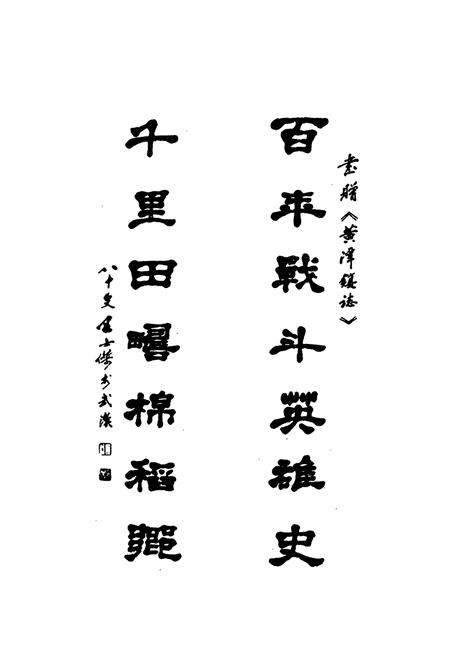 書贈《黄潭鎮誌》
百年戰斗英雄史
千里田疇棉稻鄉
八十叟士傑武漢